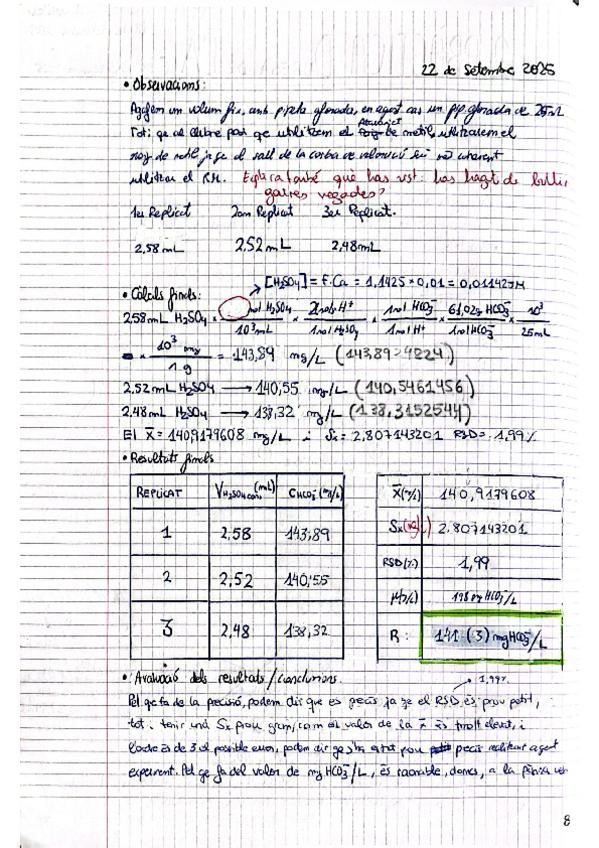 22 de Setembre 2025
• Observacions:
Agafem un volum fix, amb pipeta aforada, en aquest cas un pip. aforada de 25mL
Tot i que al llibre posa que utilitzem el de metil, utilitzarem el
de metil ja que el salt de la corba de valoració
utilitzar el R.M. Explica també què has vist: has hagut de bullir
gaires vegades?
1er Replicat 2on Replicat 3er Replicat.
2,58 mL 2,52 mL 2,48mL
[H2SO4] = F·Ca = 1,1425 × 0,01 = 0,011425M
• Càlculs finals:
2,58mL H2SO4 × mol H2SO4 / 10³mL × 2mols H+ / 1mol H2SO4 × 1mol HCO3- / 1mol H+ × 61,02g HCO3- / 1mol HCO3- × 10³ / 25mL
× 10³ mg / 1g = 143,89 mg/L (143,8924824)
2,52mL H2SO4 ⟶ 140,55 mg/L (140,5461456)
2,48mL H2SO4 ⟶ 138,32 mg/L (138,3152544)
El x̄ = 140,9179608 mg/L i Sx = 2,807143201 RSD = 1,99%
• Resultats finals
REPLICAT VH2SO4 cons (mL) CHCO3- (mg/L)
1 2,58 143,89
2 2,52 140,55
3 2,48 138,32
x̄ (mg/L) 140,9179608
Sx (mg/L) 2.807143201
RSD (%) 1,99
µ (mg/L) 198 mg HCO3-/L
R: 141 (3) mg HCO3-/L
• Avaluació dels resultats / conclusions.
1,99%
Pel que fa de la precisió, podem dir que és precís ja que el RSD, és prou petit,
tot i tenir una Sx prou gran, com el valor de la x̄ és molt elevat, i
és de 3 el possible error, podem dir que s'ha estat prou precís realitzant aquest
experiment. Pel que fa del valor de mg HCO3-/L, és raonable, doncs, a la
8